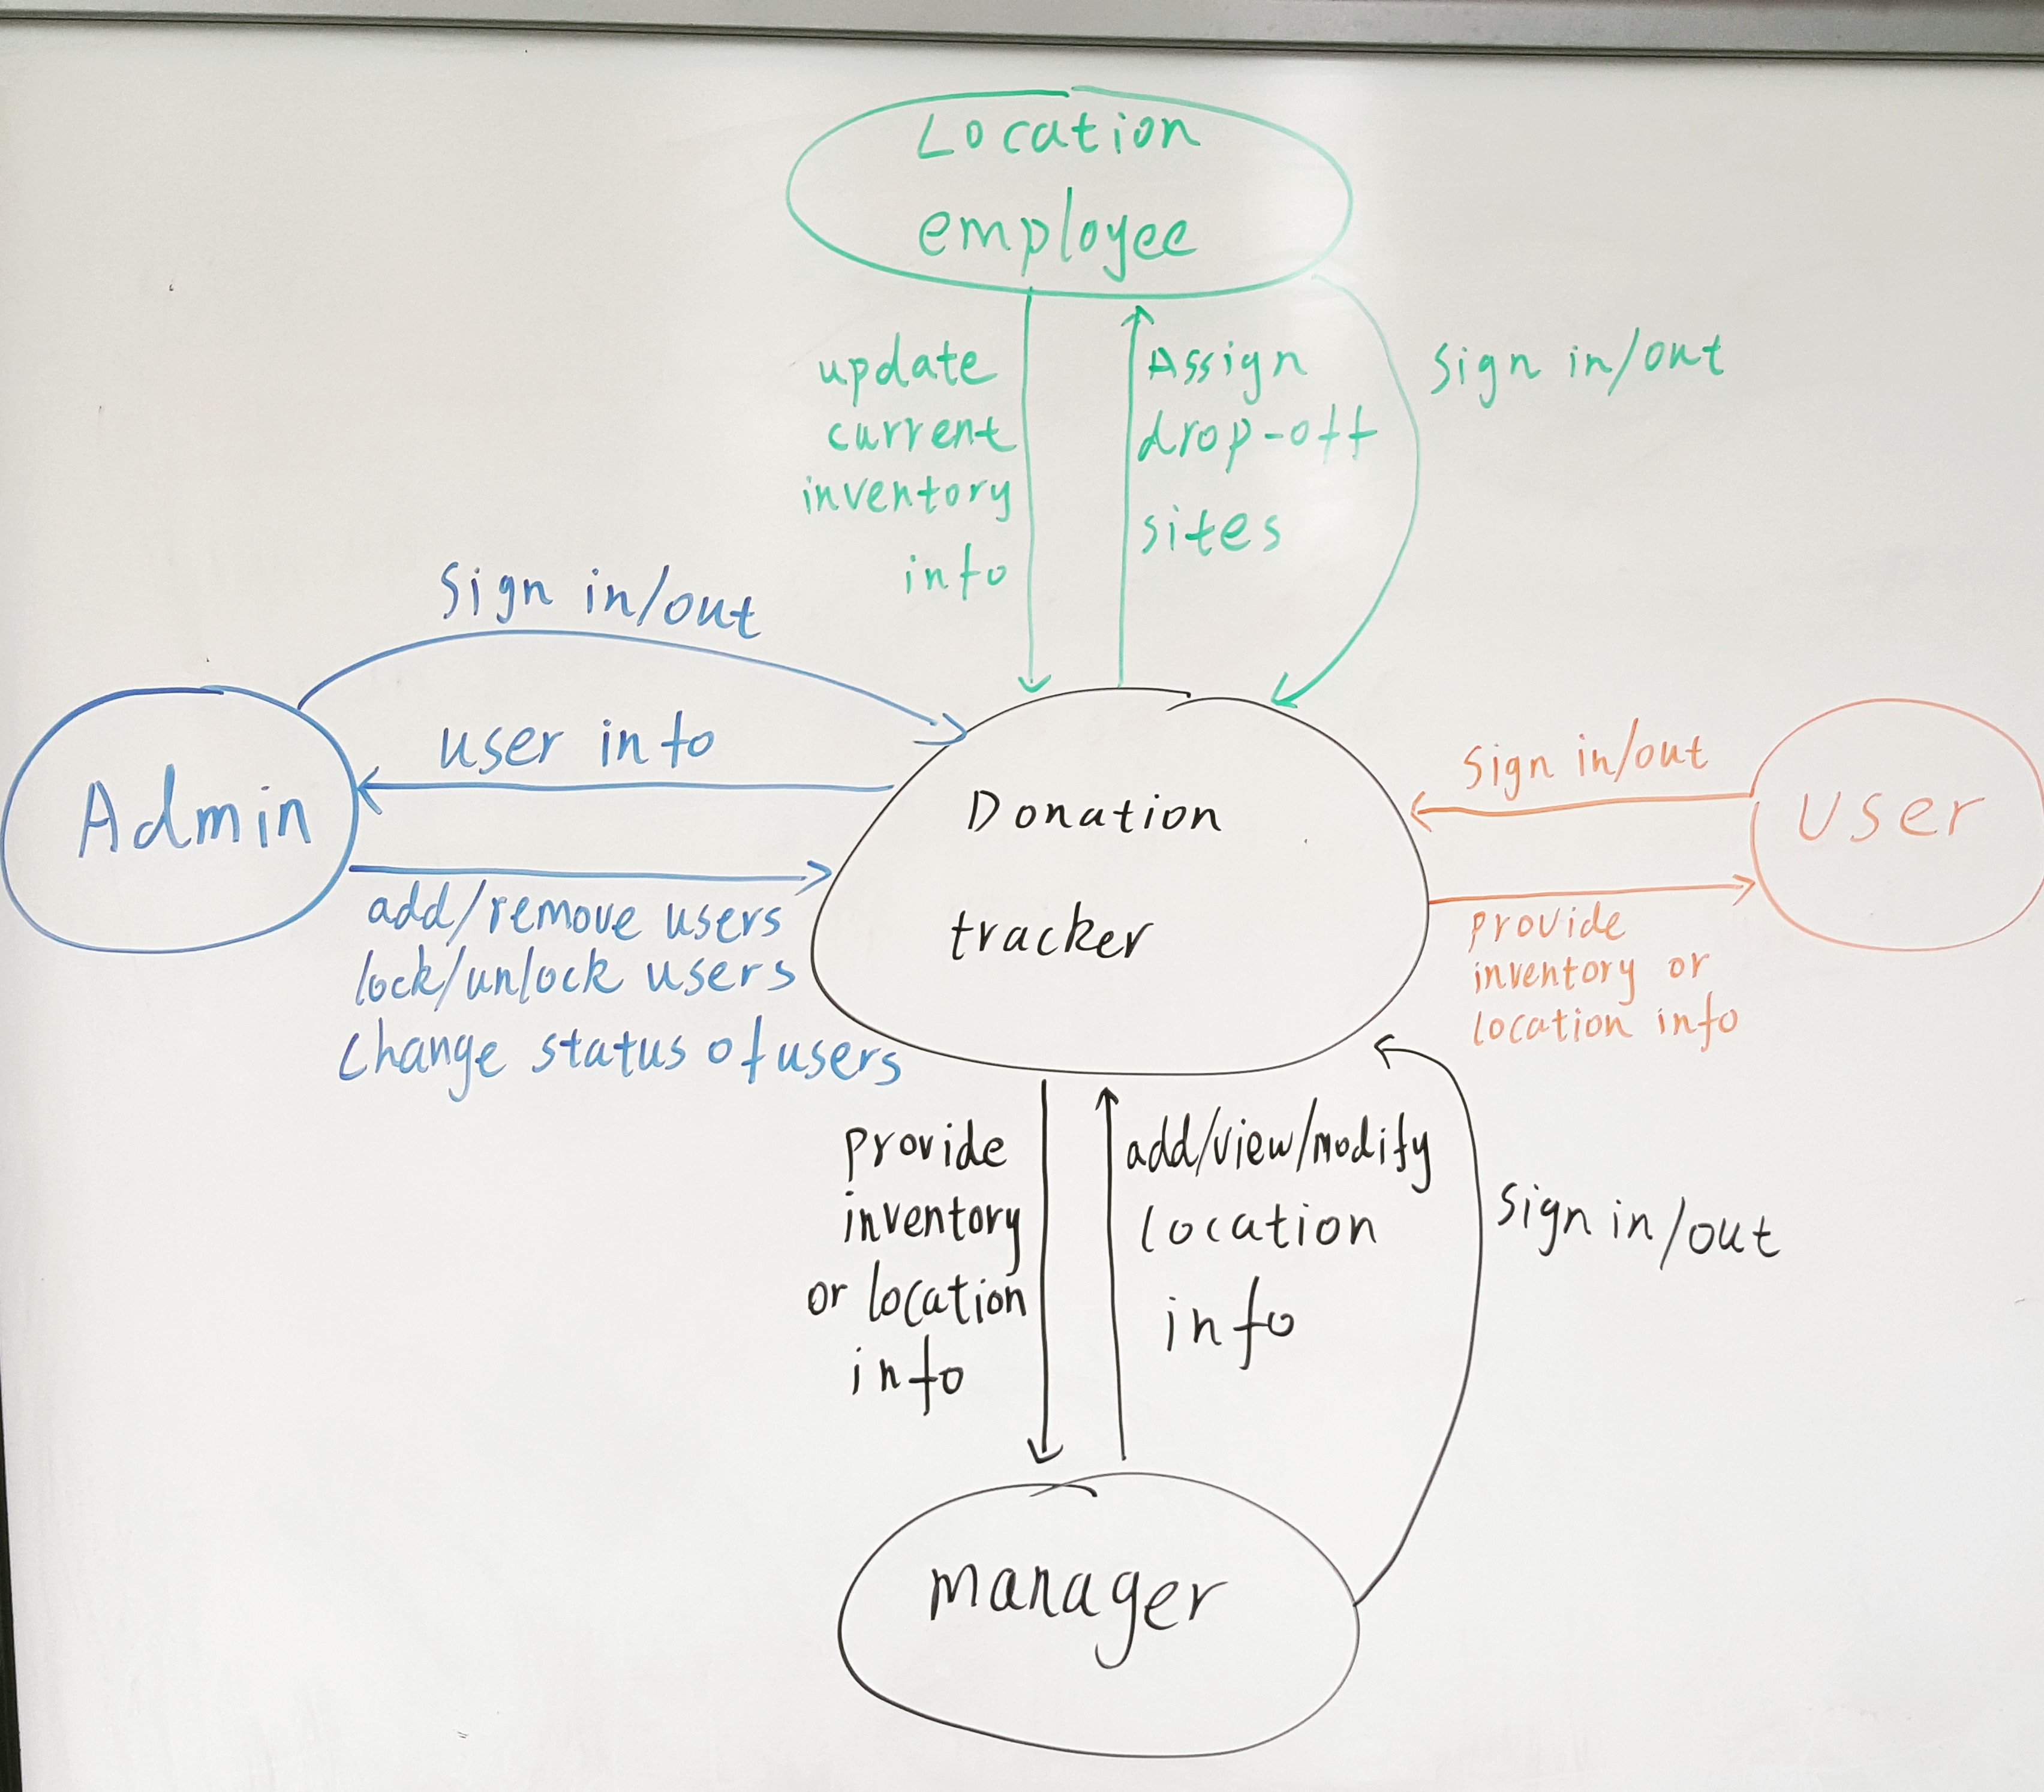 Location
employee
update
current
inventory
info
Assign
drop-off
sites
Sign in/out
Sign in/out
user info
Admin
add/remove users
lock/unlock users
Change status of users
Donation
tracker
Sign in/out
User
provide
inventory or
location info
provide
inventory
or location
info
add/view/modify
location
info
Sign in/out
manager